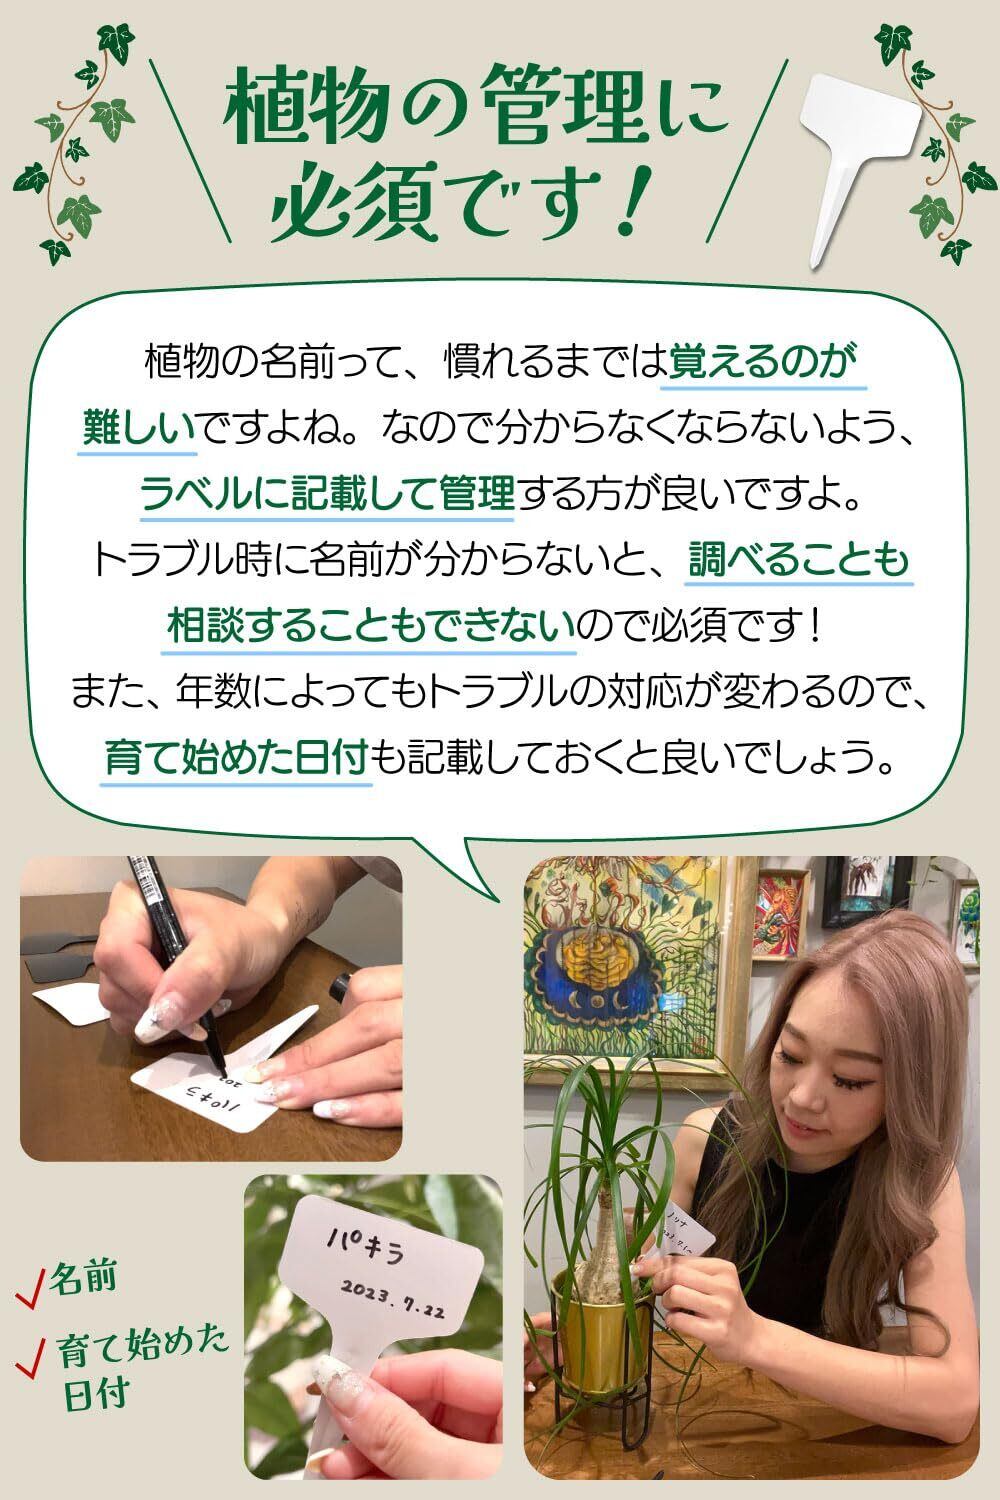 植物の管理に
必須です！
植物の名前って、慣れるまでは覚えるのが
難しいですよね。なので分からなくならないよう、
ラベルに記載して管理する方が良いですよ。
トラブル時に名前が分からないと、調べることも
相談することもできないので必須です！
また、年数によってもトラブルの対応が変わるので、
育て始めた日付も記載しておくと良いでしょう。
パキラ
202
ノリナ
2023.7.1~
名前
育て始めた
日付
パキラ
2023.7.22